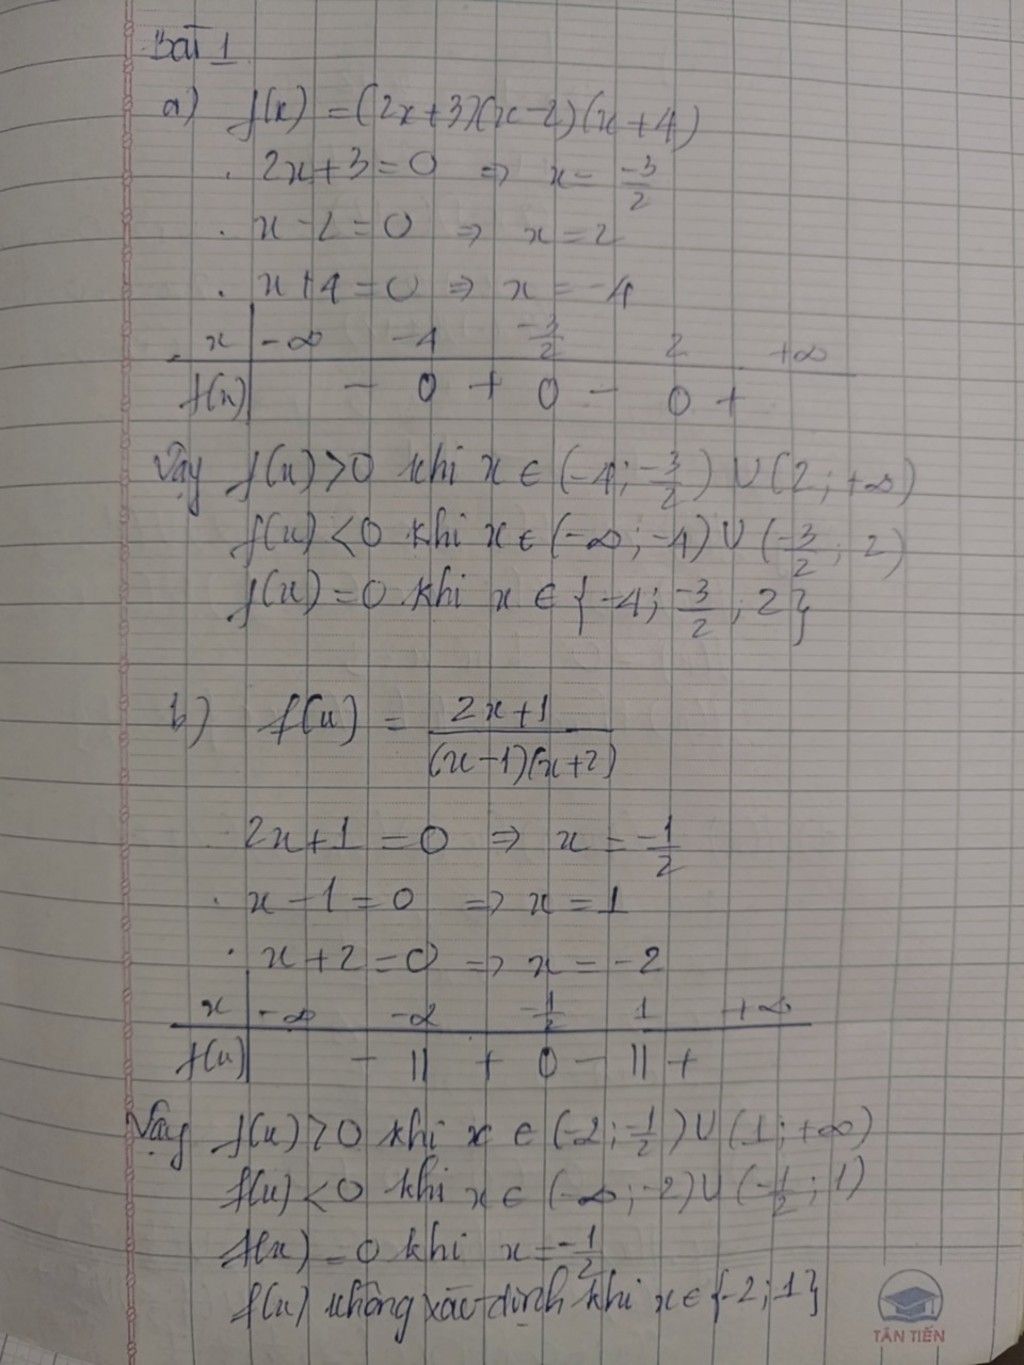 Bài 1
a) f(x) = (2x+3)(x-2)(x+4)
. 2x+3=0 => x= -3/2
. x-2=0 => x=2
. x+4=0 => x=-4
x -∞ -4 -3/2 2 +∞
f(x) - 0 + 0 - 0 +
Vậy f(x)>0 khi x ∈ (-4; -3/2) ∪ (2; +∞)
f(x)<0 khi x ∈ (-∞; -4) ∪ (-3/2; 2)
f(x)=0 khi x ∈ {-4; -3/2; 2}
b) f(x) = (2x+1)/((x-1)(x+2))
2x+1=0 => x= -1/2
. x-1=0 => x=1
. x+2=0 => x=-2
x -∞ -2 -1/2 1 +∞
f(x) - || + 0 - || +
Vậy f(x)>0 khi x ∈ (-2; -1/2) ∪ (1; +∞)
f(x)<0 khi x ∈ (-∞; -2) ∪ (-1/2; 1)
f(x)=0 khi x= -1/2
f(x) không xác định khi x ∈ {-2; 1}
TÂN TIẾN